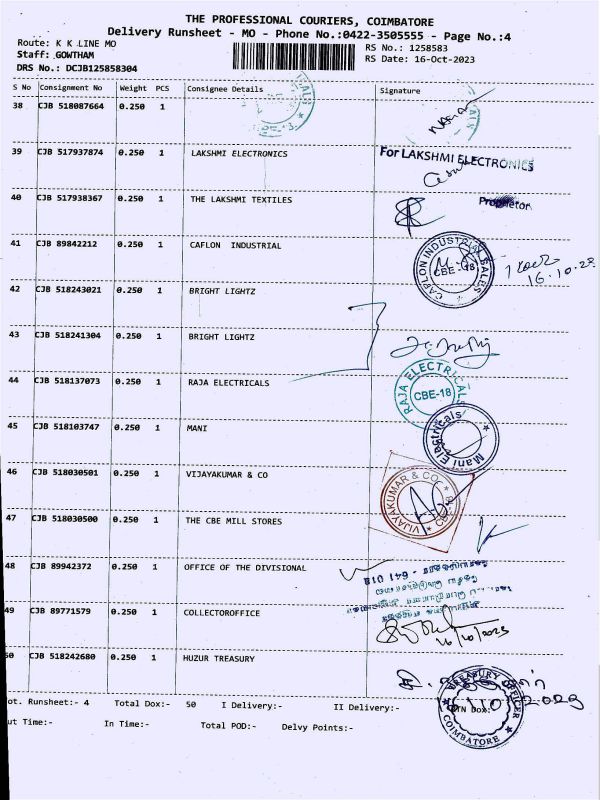 THE PROFESSIONAL COURIERS, COIMBATORE
Delivery Runsheet - MO - Phone No.:0422-3505555 - Page No.:4
Route: K K LINE MO
RS No.: 1258583
Staff: GOWTHAM
RS Date: 16-Oct-2023
DRS No.: DCJB125858304
S No Consignment No Weight PCS Consignee Details Signature
38 CJB 518087664 0.250 1
39 CJB 517937874 0.250 1 LAKSHMI ELECTRONICS
For LAKSHMI ELECTRONICS
40 CJB 517938367 0.250 1 THE LAKSHMI TEXTILES
Proprietor
41 CJB 89842212 0.250 1 CAFLON INDUSTRIAL
CAFLON INDUSTRIAL SALES
CBE-18
16.10.23
42 CJB 518243021 0.250 1 BRIGHT LIGHTZ
43 CJB 518241304 0.250 1 BRIGHT LIGHTZ
44 CJB 518137073 0.250 1 RAJA ELECTRICALS
RAJA ELECTRICALS
CBE-18
45 CJB 518103747 0.250 1 MANI
Mani Electricals
46 CJB 518030501 0.250 1 VIJAYAKUMAR & CO
VIJAYAKUMAR & CO
47 CJB 518030500 0.250 1 THE CBE MILL STORES
48 CJB 89942372 0.250 1 OFFICE OF THE DIVISIONAL
641 018
49 CJB 89771579 0.250 1 COLLECTOROFFICE
16/10/2023
50 CJB 518242680 0.250 1 HUZUR TREASURY
TREASURY OFFICER
COIMBATORE
Tot. Runsheet:- 4 Total Dox:- 50 I Delivery:- II Delivery:- RTN Dox:-
Out Time:- In Time:- Total POD:- Delvy Points:-